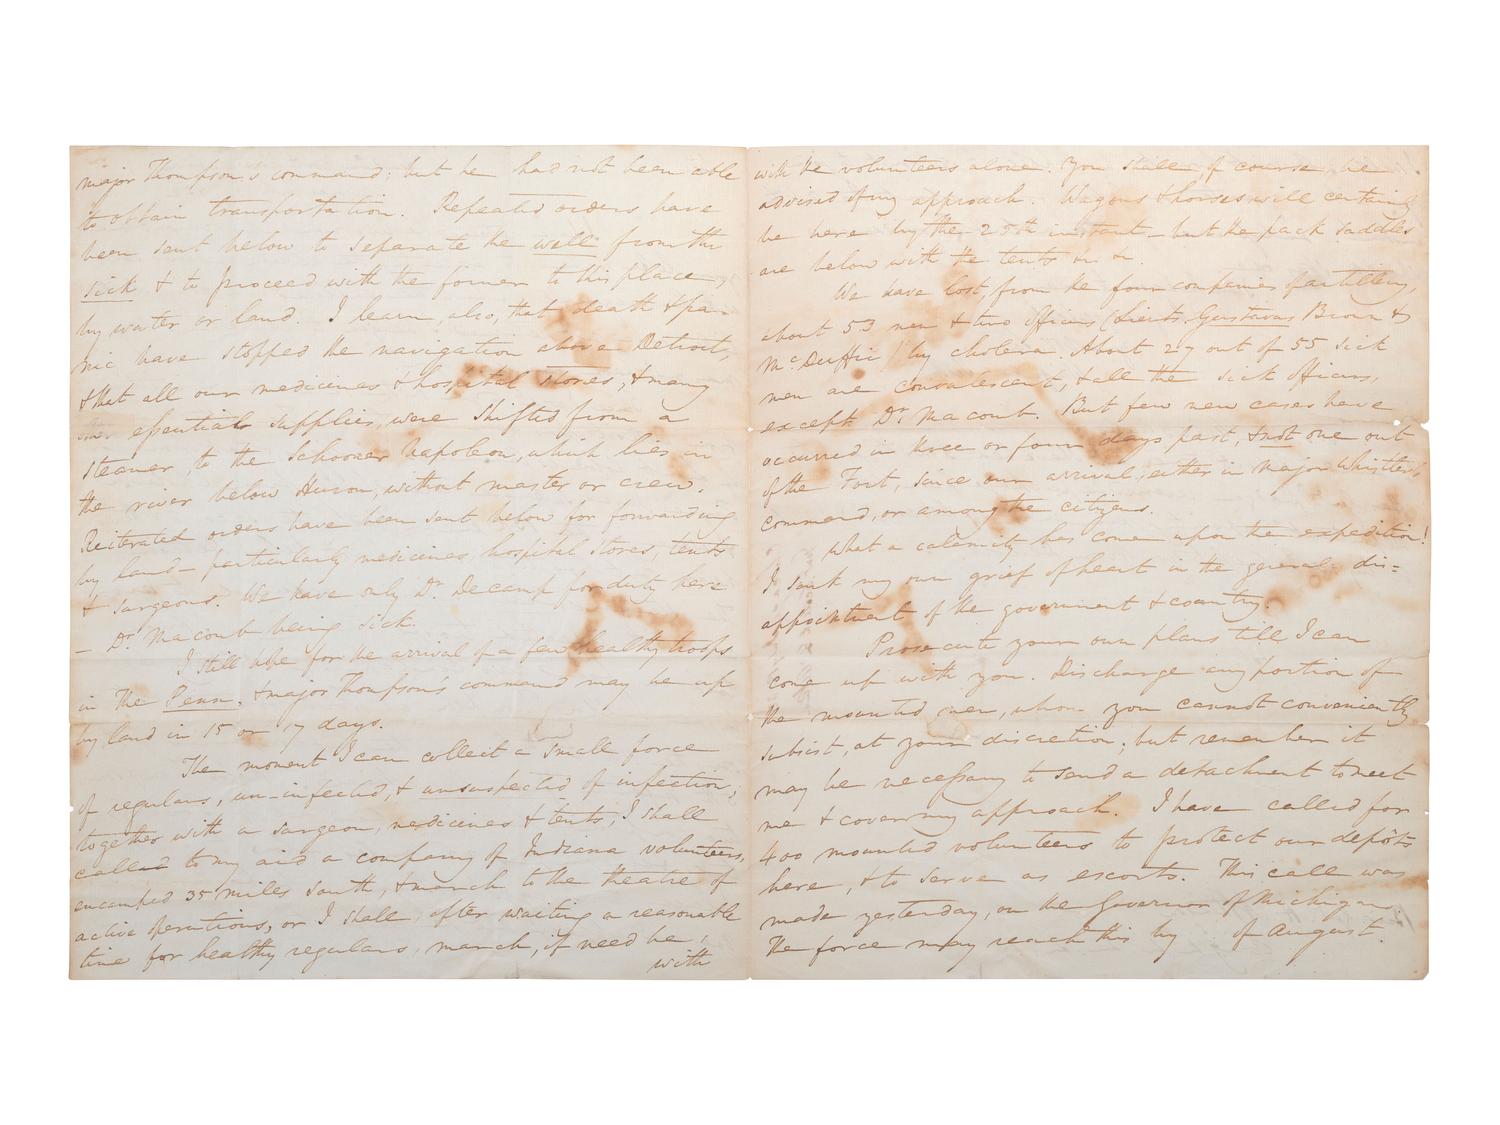 major Thompson's command; but he had not been able
to obtain transportation. Repeated orders have
been sent below to separate the well from the
sick & to proceed with the former to this place,
by water or land. I learn, also, that death & pa-
nic have stopped the navigation above Detroit,
& that all our medicines & hospital stores, & many
other essential supplies, were shifted from a
steamer to the schooner Napoleon, which lies in
the river below Huron, without master or crew.
Reiterated orders have been sent below for forwarding
by land — particularly medicines hospital stores, tents
& surgeons. We have only Dr. Decamp for duty here
— Dr. Macomb being sick.
I still hope for the arrival of a few healthy troops
in the Penn. & major Thompson's command may be up
by land in 15 or 17 days.
The moment I can collect a small force
of regulars, un-infected, & unsuspected of infection,
together with a surgeon, medicines & tents, I shall
call to my aid a company of Indiana volunteers,
encamped 35 miles south, & march to the theatre of
active operations, or I shall, after waiting a reasonable
time for healthy regulars, march, if need be,
with
with the volunteers alone. You shall, of course, be
advised of my approach. Wagons & horses will certainly
be here by the 25th instant — but the pack saddles
are below with the tents &c &c.
We have lost, from the four companies of artillery,
about 53 men & two officers (Lieuts. Gustavus Brown &
McDuffie) by cholera. About 27 out of 55 sick
men are convalescent, & all the sick officers,
except Dr. Macomb. But few new cases have
occurred in three or four days past, & not one out
of the Fort, since our arrival, either in major Whistler's
command, or among the citizens.
What a calamity has come upon the expedition!
I sink my own grief of heart in the general dis=
appointment of the government & country.
Prosecute your own plans till I can
come up with you. Discharge any portion of
the mounted men, whom you cannot conveniently
subsist, at your discretion; but remember it
may be necessary to send a detachment to meet
me & cover my approach. I have called for
400 mounted volunteers to protect our depôts
here, & to serve as escorts. This call was
made yesterday, on the Governor of Michigan.
The force may reach this by of August.